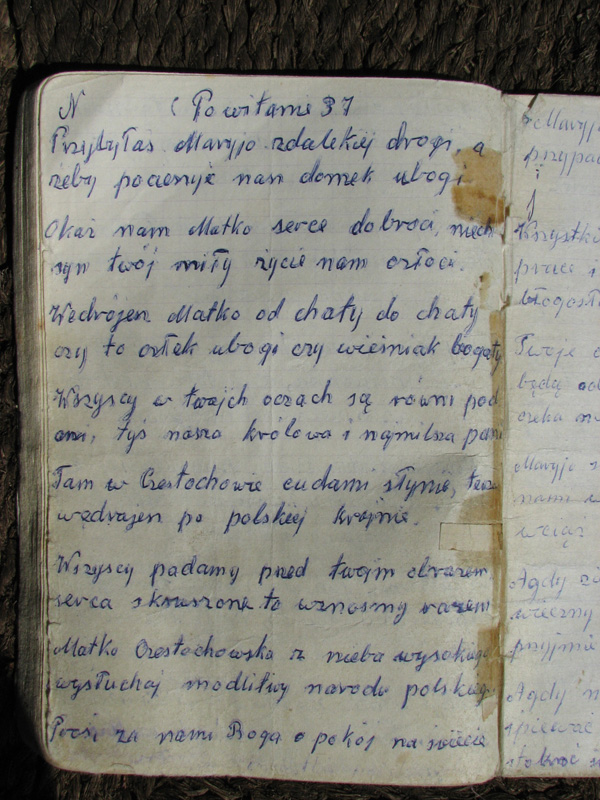 N ( Powitanie 37
Przybyłaś Maryjo zdalekiej drogi, a
żeby pocieszyć nasz domek ubogi
Okaż nam Matko serce dobroci, niech
syn twój miły życie nam ozłoci.
Wędrójesz Matko od chaty do chaty
czy to człek ubogi czy wieśniak bogaty
Wszyscy w twojch oczach są równi pod
tyś nasza królowa i najmilsza pani
Tam w Częstochowie cudami słynie,
wędrujesz po polskiej krajnie.
Wszyscy padamy pred twojm obrazem
serca skruszone to wznosmy razem
Matko Częstochowska z nieba wysokiego
wysłuchaj modlitwy narodu polskiego
Proś za nami Boga o pokój na świecie
Maryjo
Wszystki
prace i
Twoje
będą
czeka
Maryjo
nami
wciąż
Agdy
wieczny
przyjmie
Agdy
śpiewać